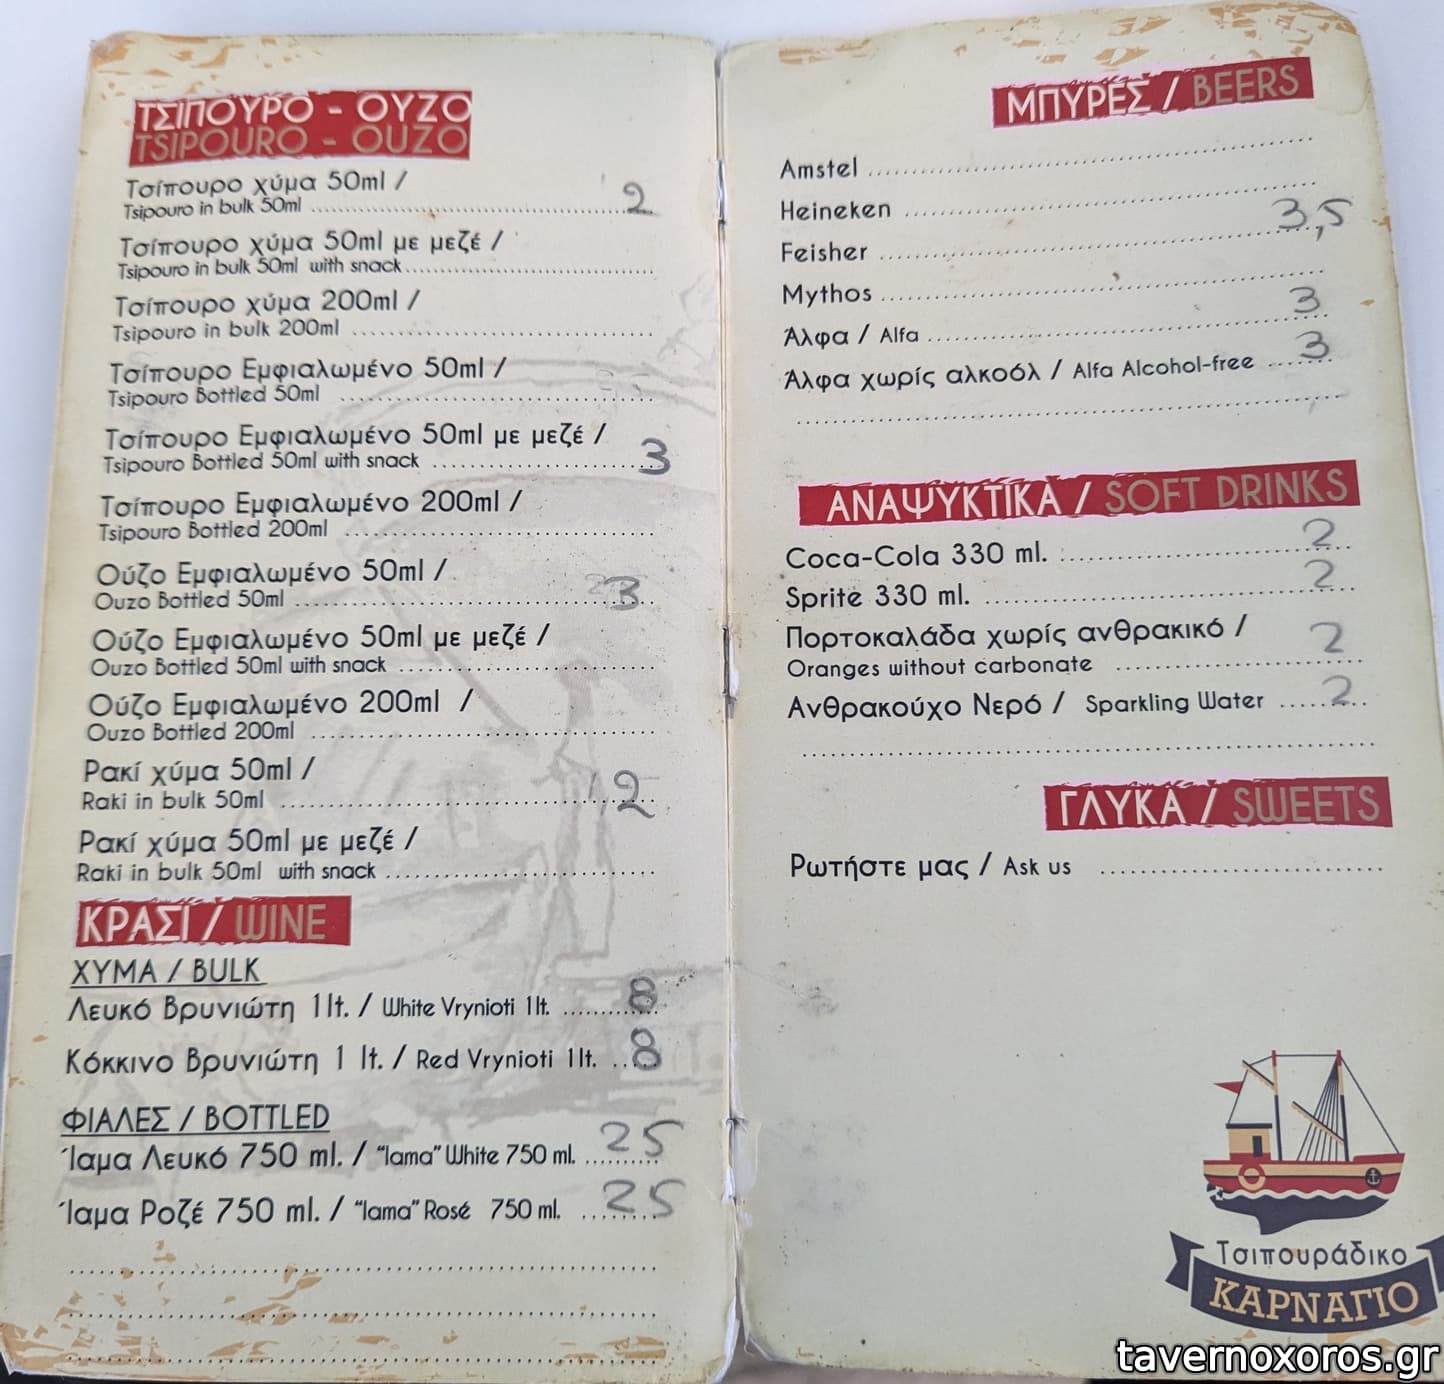 ΤΣΙΠΟΥΡΟ - ΟΥΖΟ
TSIPOURO - OUZO
Τσίπουρο χύμα 50ml /
Tsipouro in bulk 50ml 2
Τσίπουρο χύμα 50ml με μεζέ /
Tsipouro in bulk 50ml with snack
Τσίπουρο χύμα 200ml /
Tsipouro in bulk 200ml
Τσίπουρο Εμφιαλωμένο 50ml /
Tsipouro Bottled 50ml
Τσίπουρο Εμφιαλωμένο 50ml με μεζέ /
Tsipouro Bottled 50ml with snack 3
Τσίπουρο Εμφιαλωμένο 200ml /
Tsipouro Bottled 200ml
Ούζο Εμφιαλωμένο 50ml /
Ouzo Bottled 50ml 3
Ούζο Εμφιαλωμένο 50ml με μεζέ /
Ouzo Bottled 50ml with snack
Ούζο Εμφιαλωμένο 200ml /
Ouzo Bottled 200ml
Ρακί χύμα 50ml /
Raki in bulk 50ml 2
Ρακί χύμα 50ml με μεζέ /
Raki in bulk 50ml with snack
ΚΡΑΣΙ / WINE
ΧΥΜΑ / BULK
Λευκό Βρυνιώτη 1lt. / White Vrynioti 1lt. 8
Κόκκινο Βρυνιώτη 1 lt. / Red Vrynioti 1lt. 8
ΦΙΑΛΕΣ / BOTTLED
Ίαμα Λευκό 750 ml. / "Iama" White 750 ml. 25
Ίαμα Ροζέ 750 ml. / "Iama" Rosé 750 ml. 25
ΜΠΥΡΕΣ / BEERS
Amstel
Heineken
Feisher 3,5
Mythos
Άλφα / Alfa 3
Άλφα χωρίς αλκοόλ / Alfa Alcohol-free 3
ΑΝΑΨΥΚΤΙΚΑ / SOFT DRINKS
Coca-Cola 330 ml. 2
Sprite 330 ml. 2
Πορτοκαλάδα χωρίς ανθρακικό /
Oranges without carbonate 2
Ανθρακούχο Νερό / Sparkling Water 2
ΓΛΥΚΑ / SWEETS
Ρωτήστε μας / Ask us
Τσιπουράδικο
ΚΑΡΝΑΓΙΟ
tavernoxoros.gr